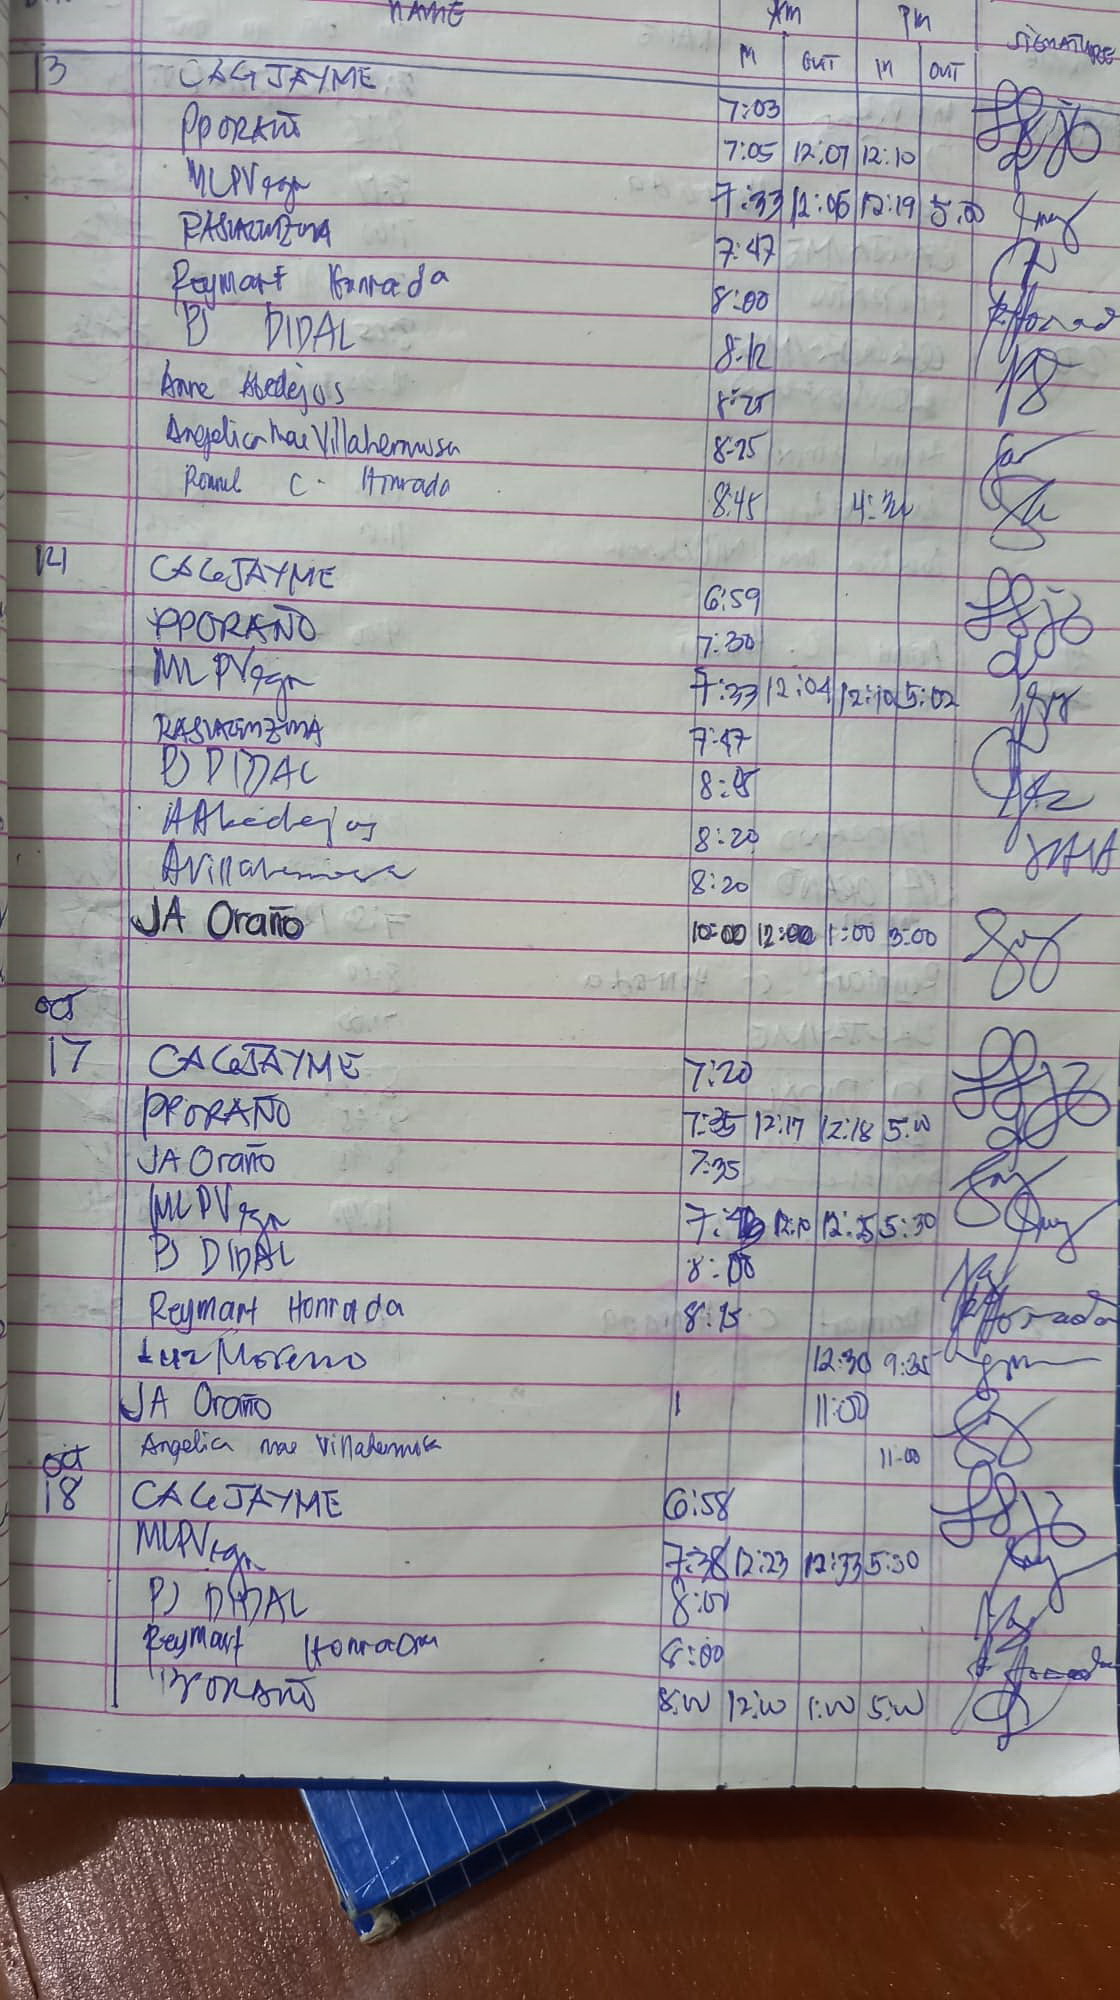 NAME AM PM SIGNATURE
IN OUT IN OUT
13 CAGJAYME 7:03
PPORAÑO 7:05 12:07 12:10
MLPVega 7:33 12:06 12:19 5:00
7:47
Reymart Honrada 8:00
PJ DIDAL 8:12
Anne Abedejos 8:25
Angelica Mae Villahermosa 8:25
Rommel C. Honrada 8:45
14 CAGJAYME 6:59
PPORAÑO 7:30
MLPVega 7:33 12:04 12:10 5:02
7:47
PJ DIDAL
AAbedejos 8:20
AVillahermosa 8:20
JA Oraño 10:00 12:00 1:00 3:00
OCT
17 CAGJAYME 7:20
PPORAÑO 12:17 12:18 5:00
JA Oraño 7:35
MLPVega 12:10 12:25 5:30
PJ DIDAL 8:00
Reymart Honrada
Luz Moreno 12:30 9:35
JA Oraño 11:00
Angelica mae Villahermosa 11:00
Oct
18 CAGJAYME 6:58
MLPVega 7:38 12:23 12:33 5:30
PJ DIDAL 8:01
Reymart Honrada 8:00
PPORAÑO 8:00 12:00 1:00 5:00